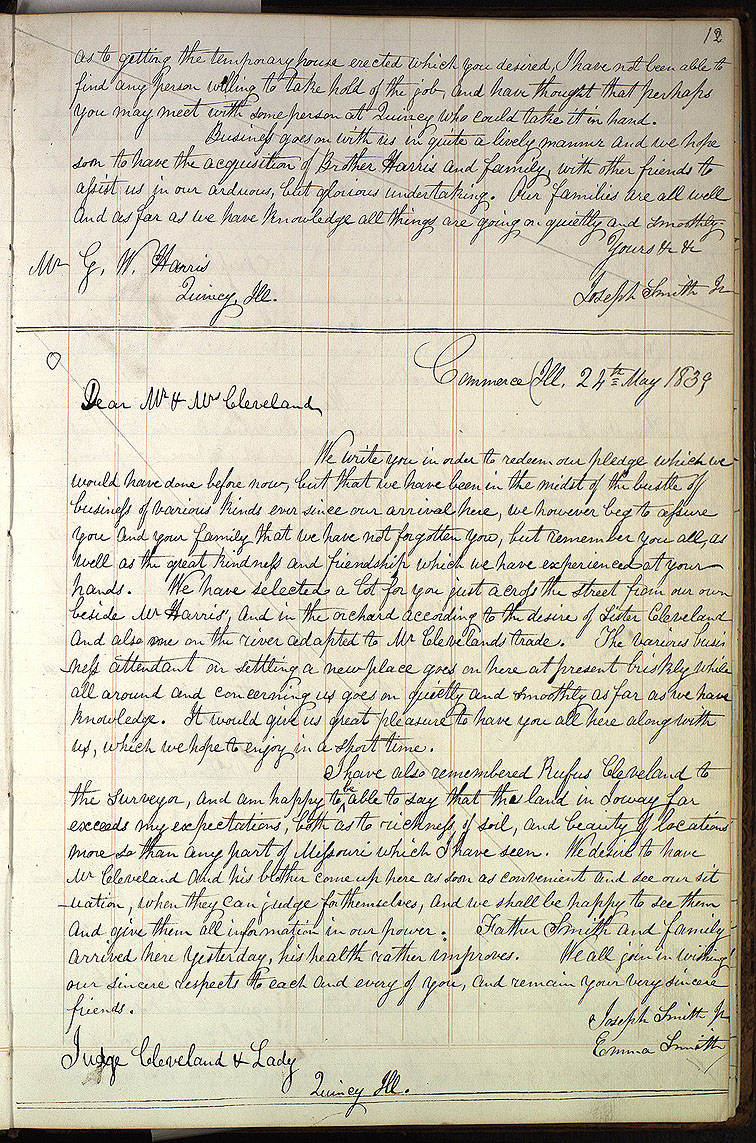 12
as to getting the temporary house erected which you desired, I have not been able to
find any Person willing to take hold of the job, and have thought that perhaps
you may meet with some person at Quincy who could take it in hand.
Business goes on with us in quite a lively manner and we hope
soon to have the acquisition of Brother Harris and family, with other friends to
assist us in our arduous, but glorious undertaking. Our families are all well
and as far as we have knowledge all things are going on quietly and smoothly
Yours &c &c
Mr G. W. Harris
Quincy, Ill.
Joseph Smith Jr
Commerce Ill. 24th May 1839
Dear Mr & Mrs Cleveland,
We write you in order to redeem our pledge which we
would have done before now, but that we have been in the midst of the bustle of
business of various kinds ever since our arrival here, we however beg to assure
you and your family that we have not forgotten you, but remember you all, as
well as the great kindness and friendship which we have experienced at your
hands. We have selected a lot for you just across the street from our own
beside Mr Harris, and in the orchard according to the desire of Sister Cleveland
and also one on the river adapted to Mr Clevelands trade. The various busi
ness attendant on settling a new place goes on here at present briskly while
all around and concerning us goes on quietly and smoothly as far as we have
knowledge. It would give us great pleasure to have you all here along with
us, which we hope to enjoy in a short time.
I have also remembered Rufus Cleveland to
the Surveyor, and am happy to be able to say that the land in Ioway far
exceeds my expectations, both as to richness of soil, and beauty of locations
more so than any part of Missouri which I have seen. We desire to have
Mr Cleveland and his brother come up here as soon as convenient and see our sit
uation, when they can judge for themselves, and we shall be happy to see them
and give them all information in our power. Father Smith and family
arrived here yesterday, his health rather improves. We all join in wishing
our sincere respects to each and every of you, and remain your very sincere
friends.
Joseph Smith Jr
Emma Smith
Judge Cleveland & Lady
Quincy Ill.